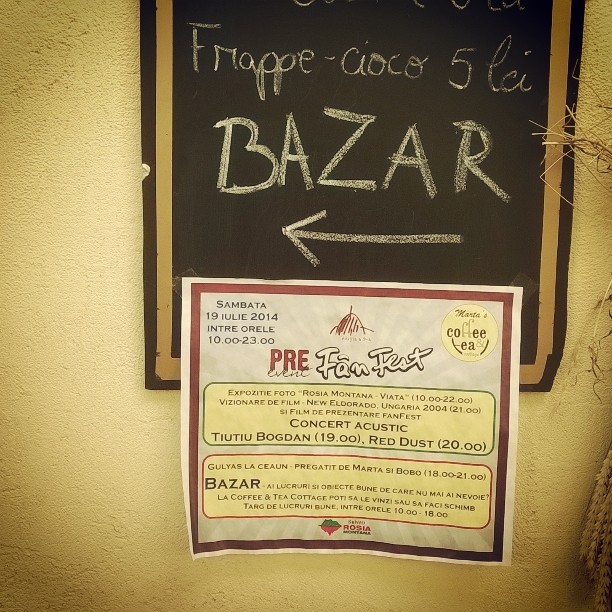 Frappe-cioco 5 lei
BAZAR
SAMBATA
19 IULIE 2014
INTRE ORELE
10.00-23.00
Marta's
coffee
&
tea
PRE
event
Fân Fest
EXPOZITIE FOTO "ROSIA MONTANA - VIATA" (10.00-22.00)
VIZIONARE DE FILM - NEW ELDORADO, UNGARIA 2004 (21.00)
SI FILM DE PREZENTARE FANFEST
CONCERT ACUSTIC
TIUTIU BOGDAN (19.00), RED DUST (20.00)
GULYAS LA CEAUN - PREGATIT DE MARTA SI BOBO (18.00-21.00)
BAZAR - AI LUCRURI SI OBIECTE BUNE DE CARE NU MAI AI NEVOIE?
LA COFFEE & TEA COTTAGE POTI SA LE VINZI SAU SA FACI SCHIMB
TARG DE LUCRURI BUNE, INTRE ORELE 10.00 - 18.00
Salvati
ROSIA
MONTANA